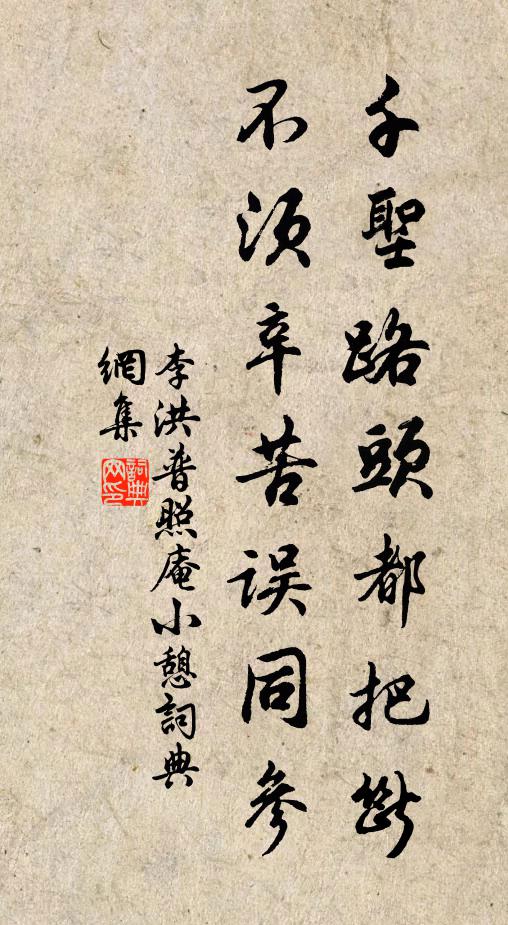 千聖路頭都把斷
不須辛苦误同參
李洪普照庵小憩詞典
網集
詞典
网印